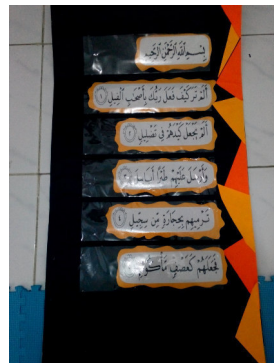 بِسْمِ اللَّهِ الرَّحْمَٰنِ الرَّحِيمِ
أَلَمْ تَرَ كَيْفَ فَعَلَ رَبُّكَ بِأَصْحَابِ الْفِيلِ ١
أَلَمْ يَجْعَلْ كَيْدَهُمْ فِي تَضْلِيلٍ ٢
وَأَرْسَلَ عَلَيْهِمْ طَيْرًا أَبَابِيلَ ٣
تَرْمِيهِم بِحِجَارَةٍ مِّن سِجِّيلٍ ٤
فَجَعَلَهُمْ كَعَصْفٍ مَّأْكُولٍ